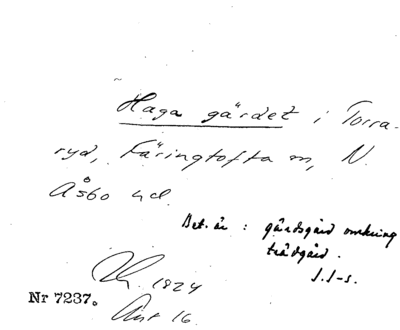 Haga gärdet i Torra-
ryd, Färingtofta sn, N.
Åsbo hd.
Bet. är : gärdsgård omkring
trädgård.
S.J-s.
1924
Nr 7237.